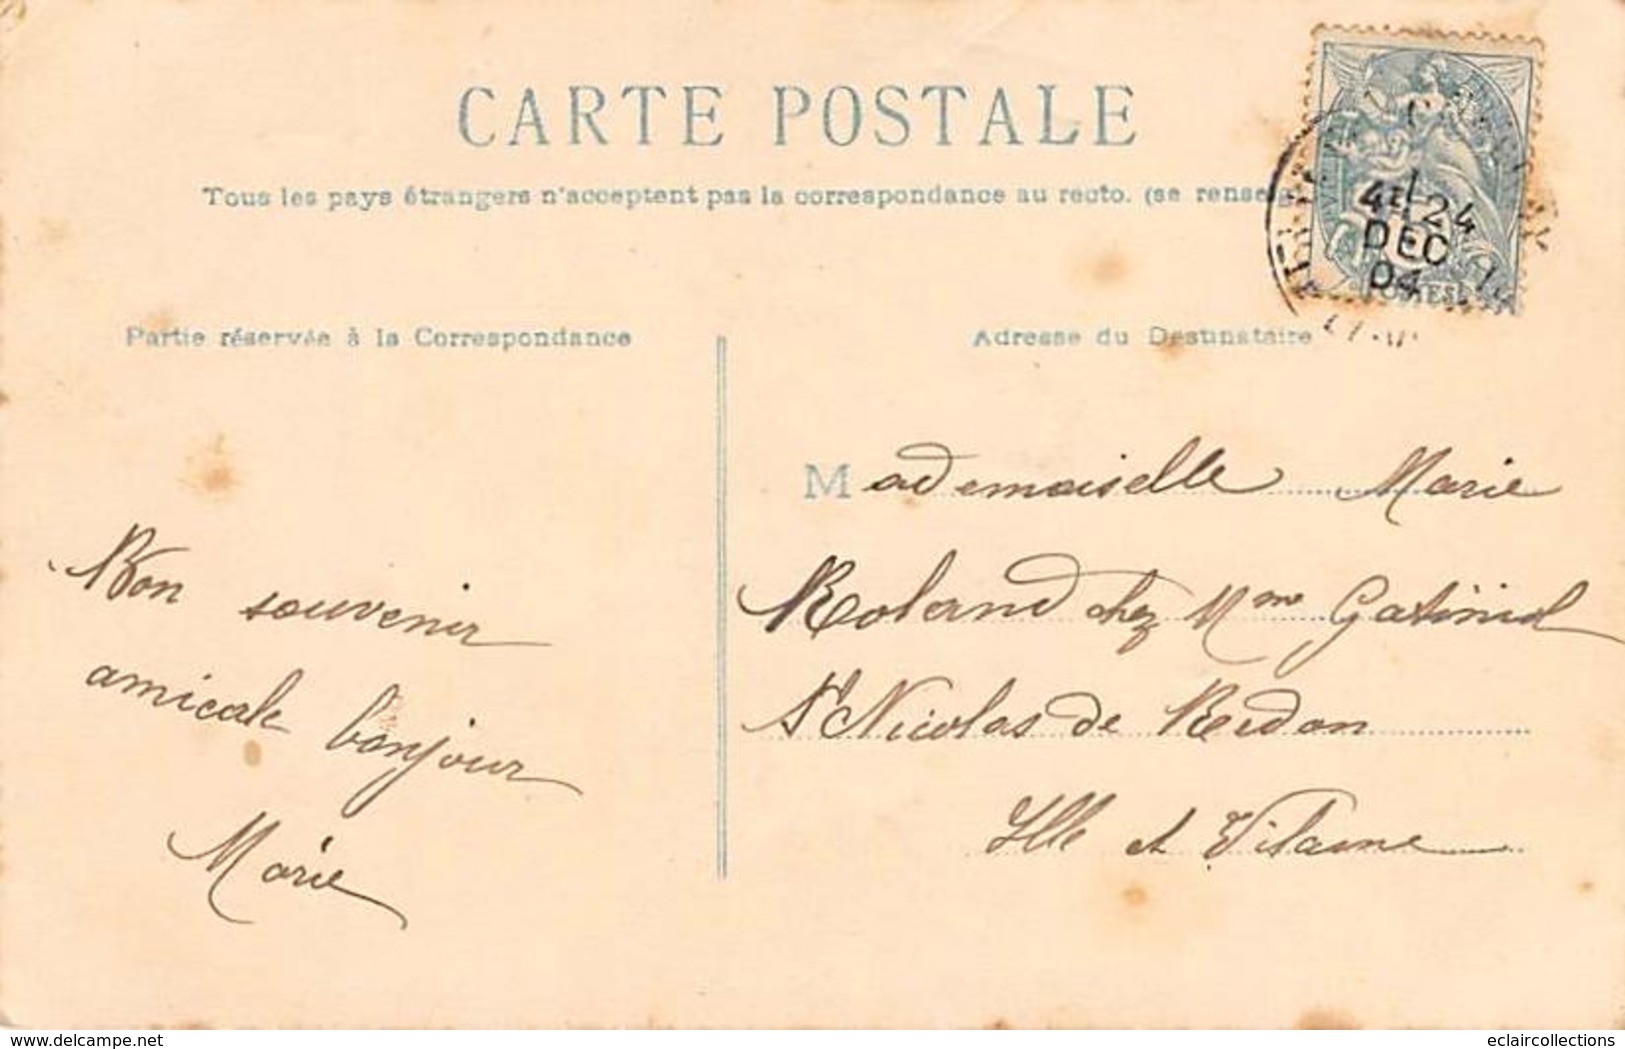 CARTE POSTALE
Tous les pays étrangers n'acceptent pas la correspondance au recto. (se rense
Partie réservée à la Correspondance
Adresse du Destinataire
4E 24
DEC
04
POSTES
Bon souvenir
amicale bonjour
Marie
Mademoiselle Marie
Roland chez Mme
St Nicolas de Redon
Ille et Vilaine
delcampe.net
eclaircollections